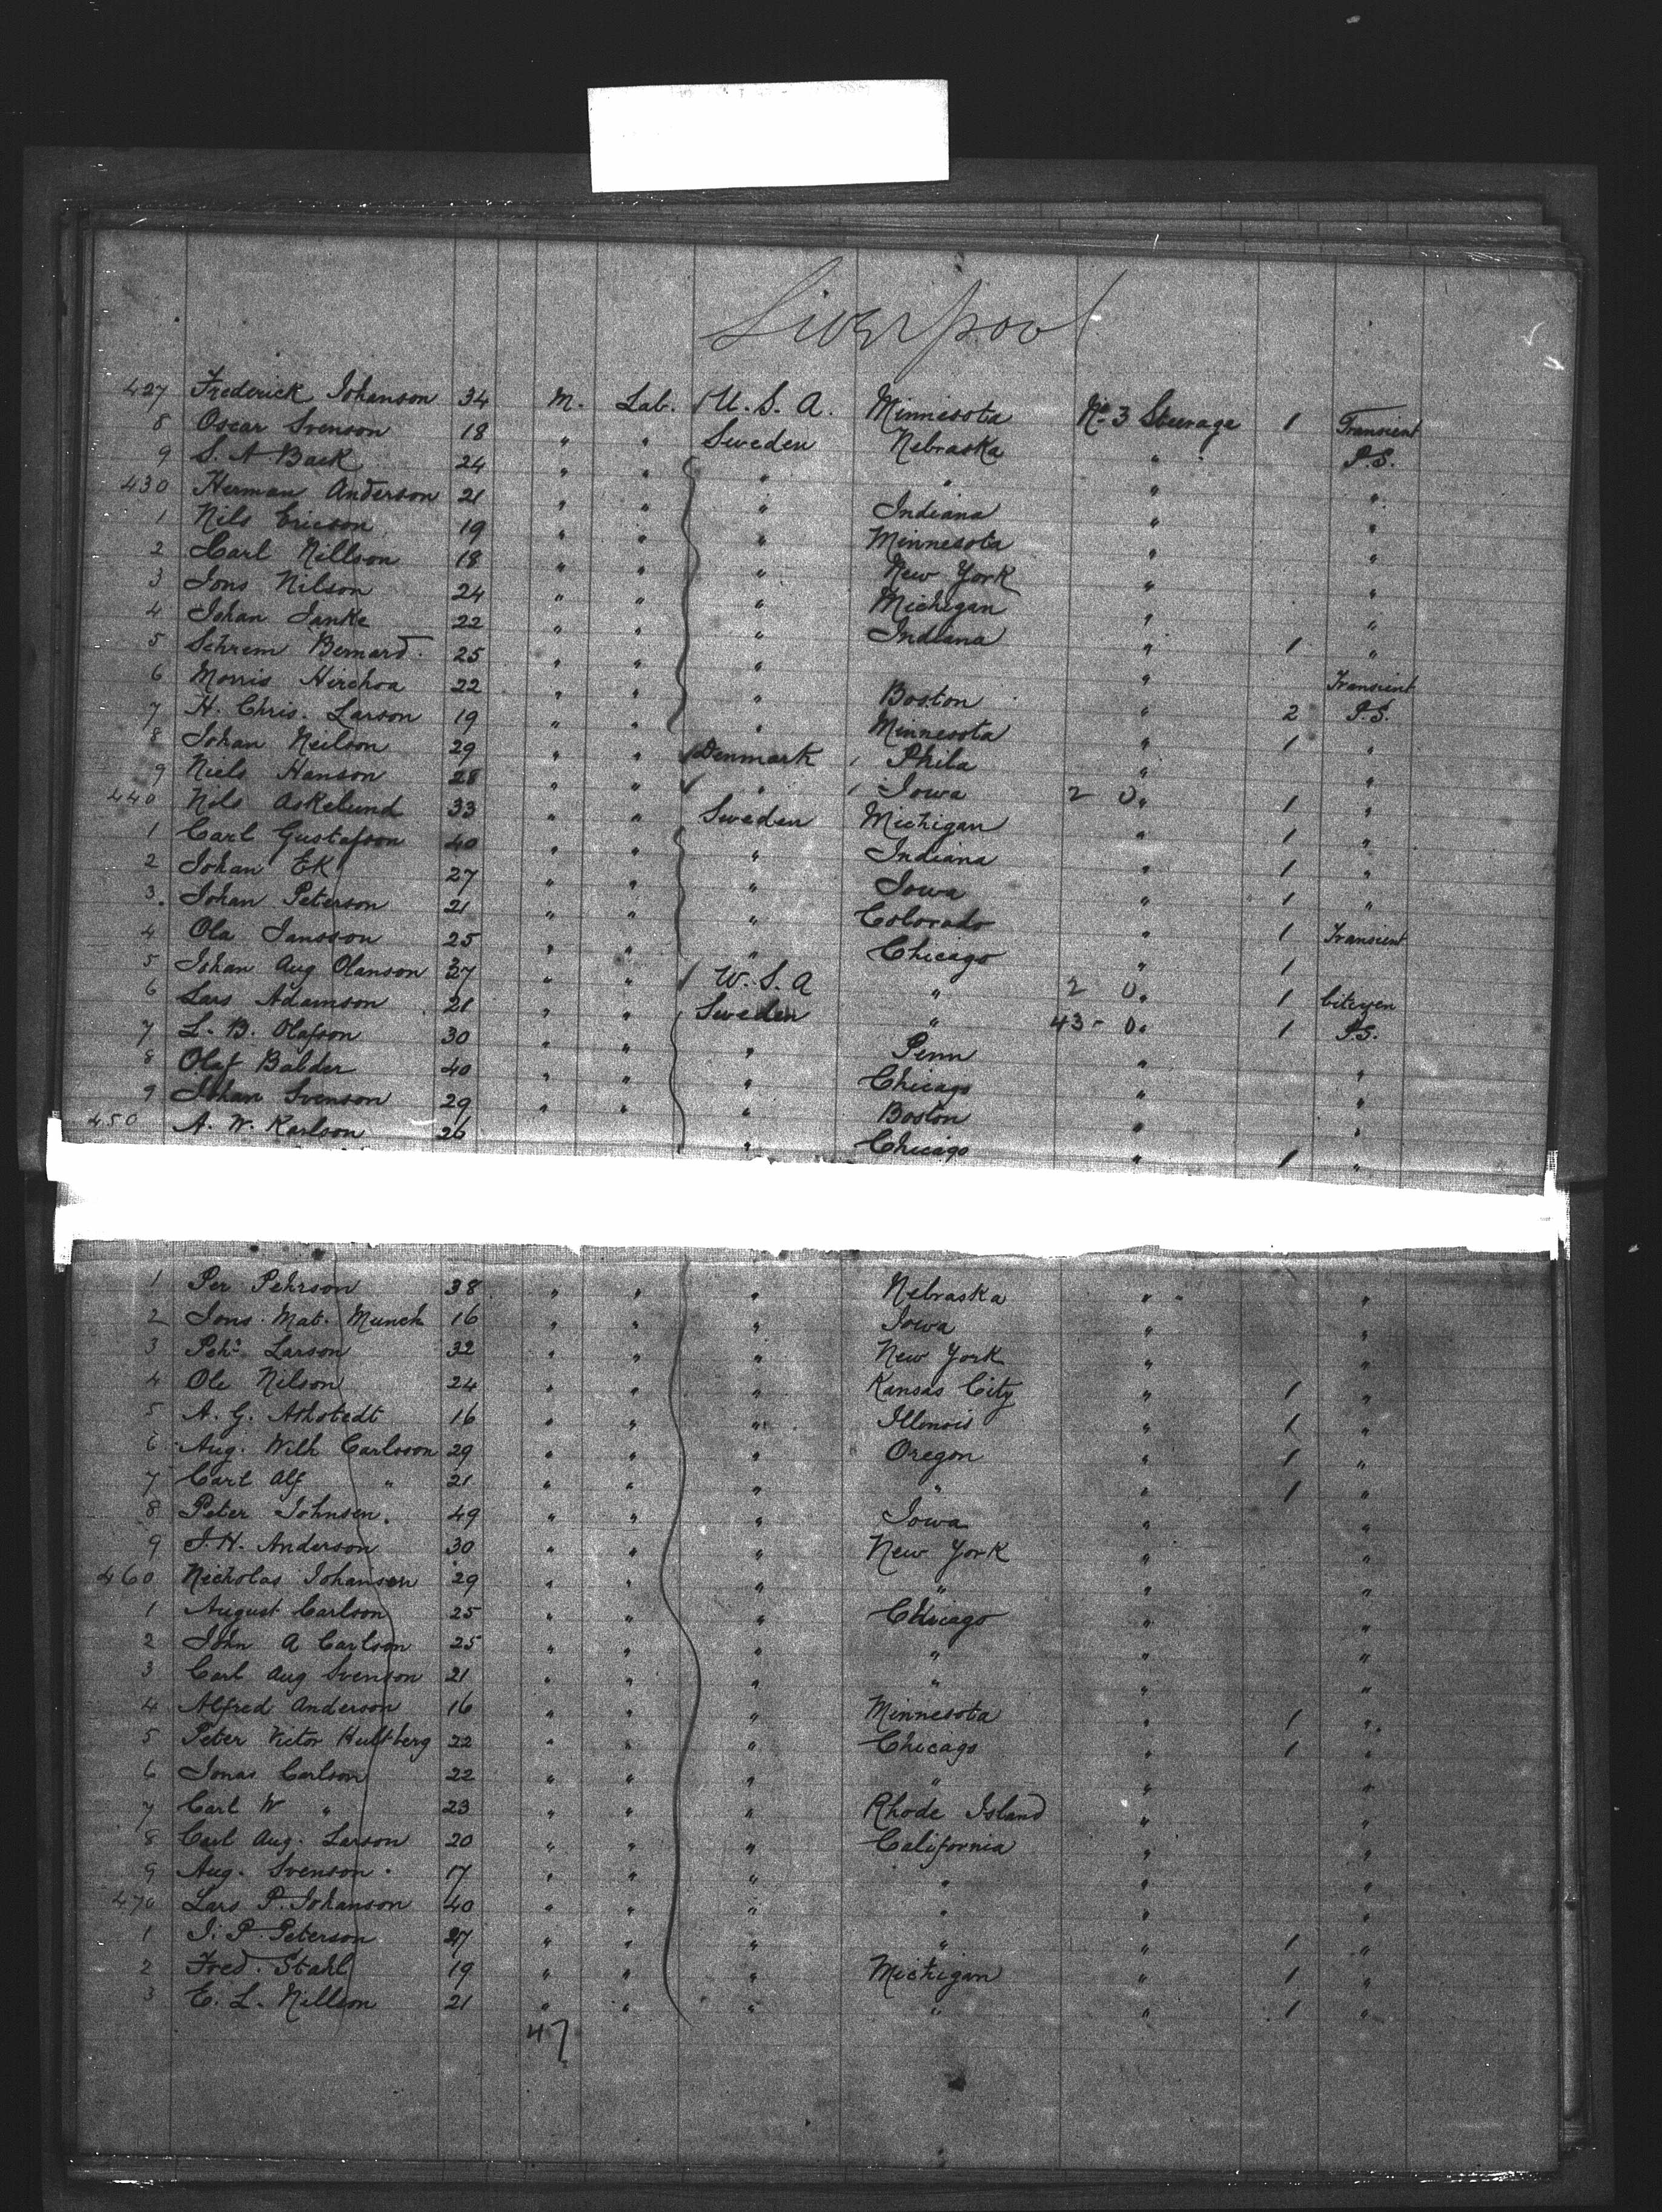 Liverpool
427 Frederick Johanson 34 M. Lab. U.S.A. Minnesota No 3 Steerage 1 Transient
8 Oscar Svenson 18 " " Sweden Nebraska " P.S.
9 S. A Back 24 " " " " " "
430 Herman Anderson 21 " " " Indiana " "
1 Nils Ericson 19 " " " Minnesota " "
2 Carl Nillson 18 " " " New York " "
3 Jons Nilson 24 " " " Michigan " "
4 Johan Janke 22 " " " Indiana " 1 "
5 Schrem Bernard. 25 " " " " Transient
6 Morris Hirchoa 22 " " " Boston " 2 P.S.
7 H. Chris. Larson 19 " " " Minnesota " 1 "
8 Johan Neilson 29 " " Denmark Phila " "
9 Niels Hanson 28 " " " Iowa 2 O " 1 "
440 Nils Askelund 33 " " Sweden Michigan " 1 "
1 Carl Gustafson 40 " " " Indiana " 1 "
2 Johan Ek 27 " " " Iowa " 1 "
3. Johan Peterson 21 " " " Colorado " 1 Transient
4 Ola Jansson 25 " " " Chicago " 1
5 Johan Aug Olanson 27 " " U.S.A " 2 O " 1 Citizen
6 Lars Adamson 21 " " Sweden " 43- O " 1 P.S.
7 L. B. Olafson 30 " " " Penn " "
8 Olaf Balder 40 " " " Chicago " "
9 Johan Svenson 29 " " " Boston " "
450 A. W. Karlson 26 " Chicago " 1 "
1 Per Pehrson 38 " " " Nebraska " " "
2 Jons. Mat. Munch 16 " " " Iowa " "
3 Pehr Larson 32 " " " New York " "
4 Ole Nilson 24 " " " Kansas City " 1 "
5 A. G. Ahstedt 16 " " " Illinois " 1 "
6 Aug. Wilh Carlsson 29 " " " Oregon " 1 "
7 Carl Alf " 21 " " " " " 1 "
8 Peter Johnsen. 49 " " " Iowa " "
9 J. H. Anderson 30 " " " New York " "
460 Nicholas Johansen 29 " " " " " "
1 August Carlson 25 " " " Chicago " "
2 John A Carlson 25 " " " " " "
3 Carl Aug Svenson 21 " " " " " "
4 Alfred Anderson 16 " " " Minnesota " 1 "
5 Peter Victor Hultberg 22 " " " Chicago " 1 "
6 Jonas Carlson 22 " " " " " "
7 Carl W " 23 " " " Rhode Island " "
8 Carl Aug. Larson 20 " " " California " "
9 Aug. Svenson. 17 " " " " " "
470 Lars P. Johanson 40 " " " " " "
1 J. P. Peterson 27 " " " " " 1 "
2 Fred. Stahl 19 " " " Michigan " 1 "
3 E. L. Nillson 21 " " " " " 1 "
47